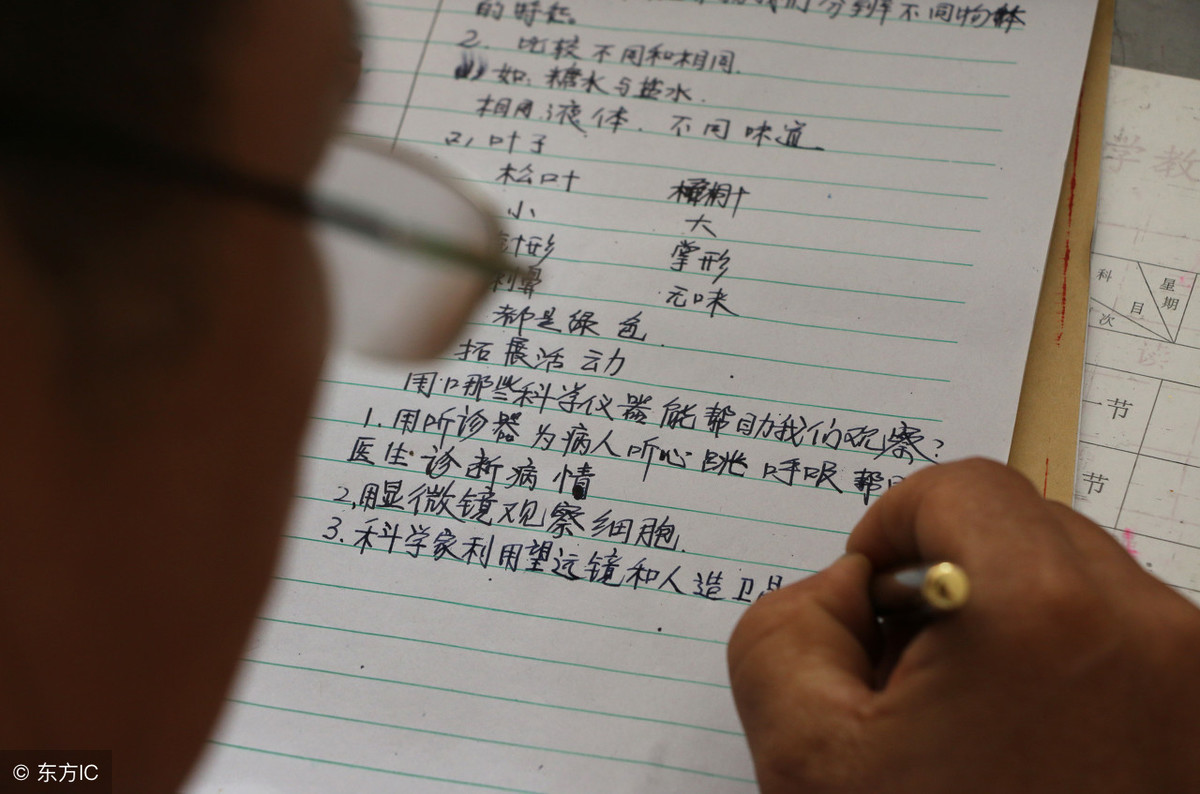 我们分辨不同物体
的特征。
2. 比较不同和相同.
如: 糖水与盐水.
相同:液体. 不同 味道
2, 叶子
松叶 橡树叶
小 大
针形 掌形
刺鼻 无味
都是绿色.
拓展活动
用:哪些科学仪器能帮助我们观察?
1. 用听诊器为病人听心跳呼吸 帮
医生诊断病情
2,用显微镜观察细胞.
3. 科学家利用望远镜和人造卫星
学教
科 目 次 星期
读
一节
节
© 东方IC